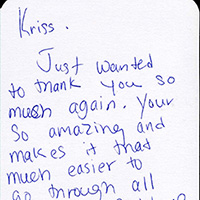 Kriss.
Just wanted
to thank you so
much again. Your
so amazing and
makes it that
much easier to
go through all